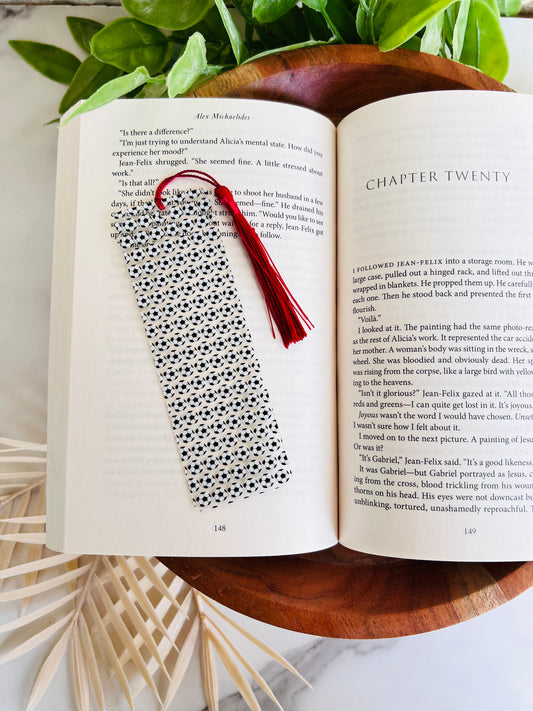 Alex Michaelides
"Is there a difference?"
"I'm just trying to understand Alicia's mental state. How did you
experience her mood?"
Jean-Felix shrugged. "She seemed fine. A little stressed about
work."
"Is that all?"
"She didn't look like to shoot her husband in a few
days, if seemed—fine." He drained his
"Would you like to see
for a reply, Jean-Felix got
up follow.
148
CHAPTER TWENTY
I FOLLOWED JEAN-FELIX into a storage room. He w
large case, pulled out a hinged rack, and lifted out thr
wrapped in blankets. He propped them up. He carefully
each one. Then he stood back and presented the first
flourish.
"Voilà."
I looked at it. The painting had the same photo-rea
as the rest of Alicia's work. It represented the car accide
her mother. A woman's body was sitting in the wreck, s
wheel. She was bloodied and obviously dead. Her
was rising from the corpse, like a large bird with yellow
ing to the heavens.
"Isn't it glorious?" Jean-Felix gazed at it. "All thos
reds and greens—I can quite get lost in it. It's joyous.
Joyous wasn't the word I would have chosen. Unset
I wasn't sure how I felt about it.
I moved on to the next picture. A painting of Jesu
Or was it?
"It's Gabriel," Jean-Felix said. "It's a good likeness.
It was Gabriel—but Gabriel portrayed as Jesus, c
ing from the cross, blood trickling from his woun
thorns on his head. His eyes were not downcast bu
unblinking, tortured, unashamedly reproachful. T
149